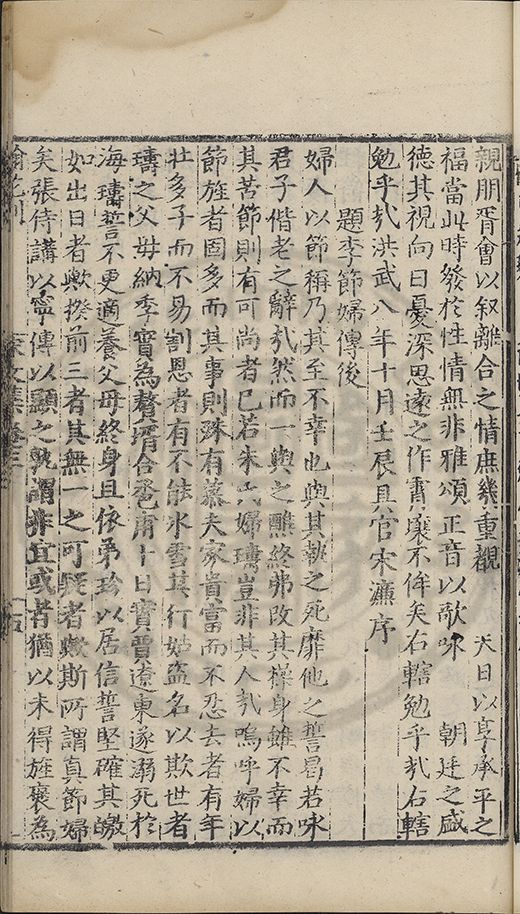 親朋胥會以叙離合之情庶幾重覩 天日以享承平之
福當此時發於性情無非雅頌正音以歌咏 朝廷之盛
德其視向日憂深思遠之作霄壤不侔矣右轄勉乎㦲右轄
勉乎㦲洪武八年十月壬辰具官宋濂序
題李節婦傳後
婦人以節稱乃其至不幸也與其執之死靡他之誓曷若咏
君子偕老之辭㦲然而一與之醮終弗改其操身雖不幸而
其苦節則有可尚者已若朱氏婦璹豈非其人㦲嗚呼婦以
節旌者固多而其事則殊有慕夫家貴富而不忍去者有年
壮多子而不易割恩者有不能氷雪其行姑盗名以欺世者
璹之父毋納季實為贅壻合卺甫十日實賈遼東遂溺死於
海璹誓不更適養父母終身且依弟珍以居信誓堅確其皦
如出日者歟揆前三者其無一之可疑者歟斯所謂真節婦
矣張侍講以寧傳以顯之孰謂非宜或者猶以未得旌褒為
宋文集卷三